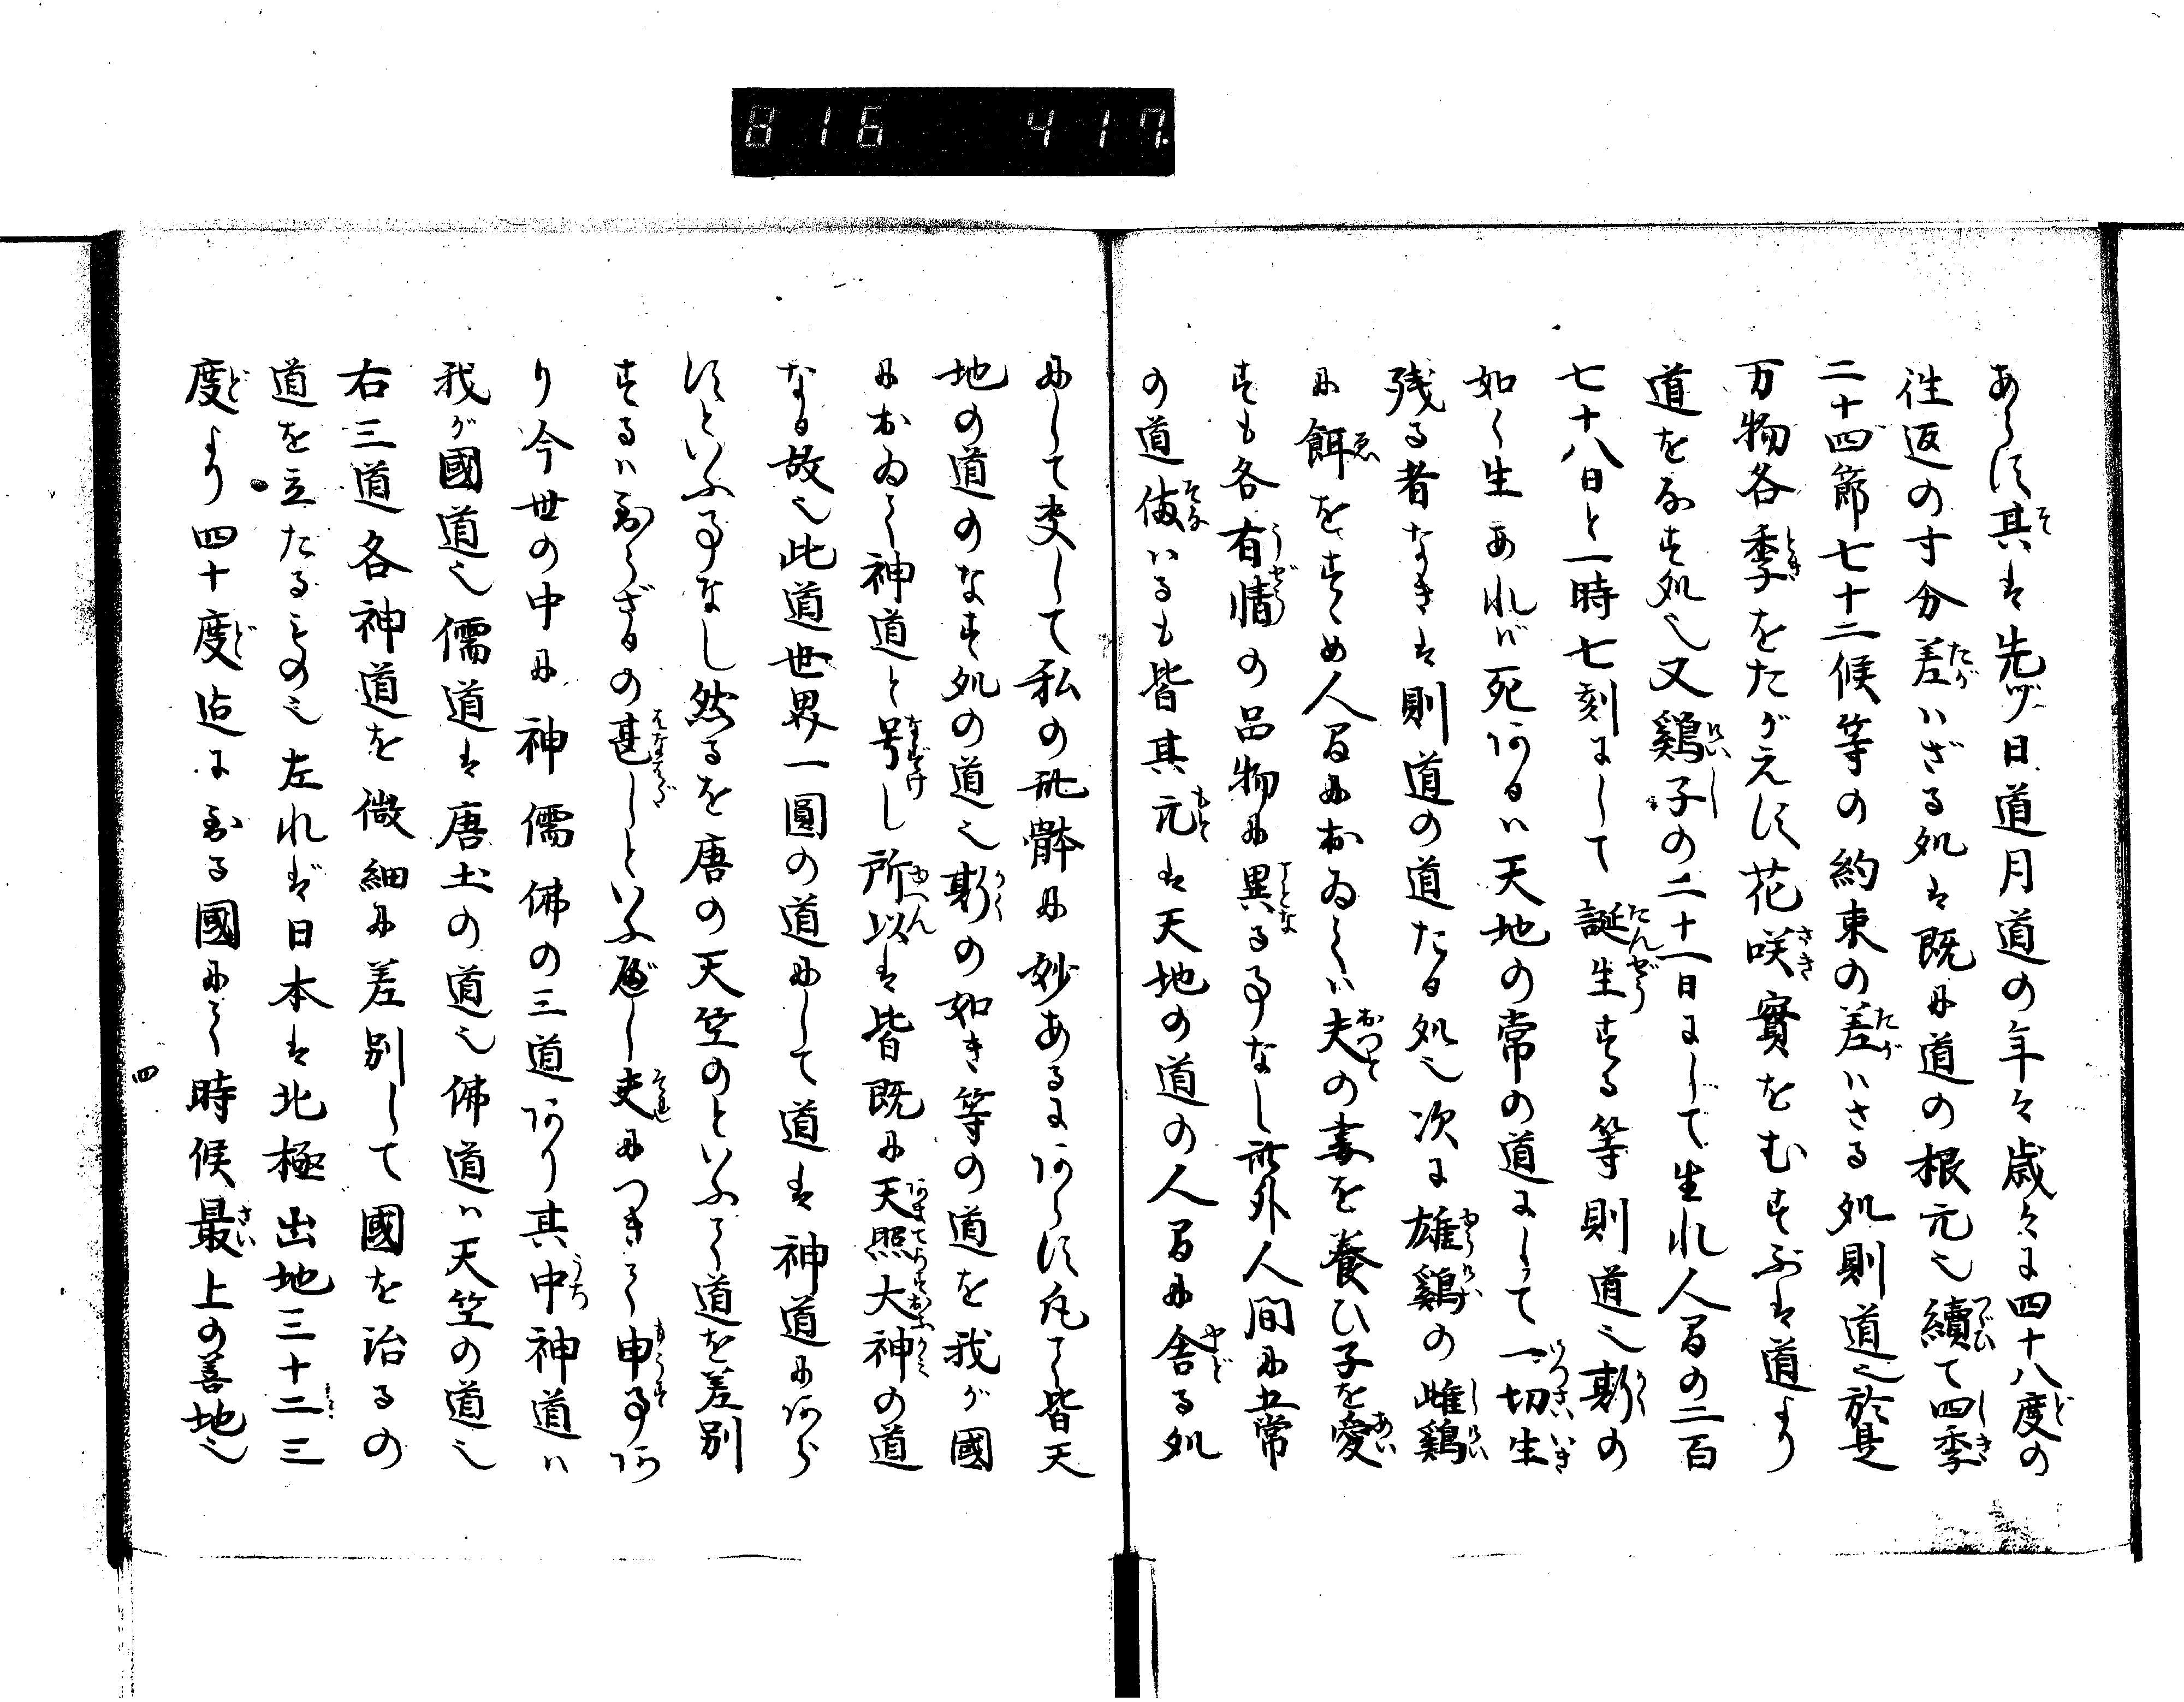 816 417
あらず其は先ヅ日道月道の年々歳々に四十八度の
徃返の寸分差ハざる処は既に道の根元也續て四季
二十四節七十二候等の約束の差ハさる処則道也於是
万物各季をたがえず花咲實をむすぶは道より
道をなす処也又鷄子の二十一日にして生れ人間の二百
七十八日と一時七刻にして誕生する等則道也斯の
如く生あれバ死あるハ天地の常の道にして一切生
残る者なきは則道の道たる処也次に雄鷄の雌鷄
に餌をすゝめ人間におゐてハ夫の妻を養ひ子を愛
すも各有情の品物に異る事なし此外人間に五常
の道備ハるも皆其元は天地の道の人間に舎る処
にして更して私の躰に妙あるにあらず凡て皆天
地の道のなす処の道也斯の如き等の道を我が國
におゐて神道と号し所以は皆既に天照大神の道
なる故也此道世界一圓の道にして道は神道にあら
ずといふ事なし然るを唐の天竺のといふて道を差別
するハ至らざるの甚しといふべし夫につきて申事あ
り今世の中に神儒佛の三道あり其中神道ハ
我が國道也儒道は唐土の道也佛道ハ天竺の道也
右三道各神道を微細に差別して國を治るの
道を立たるもの也左れば日本は北極出地三十二三
度より四十度迠に至る國にて時候最上の善地也
四